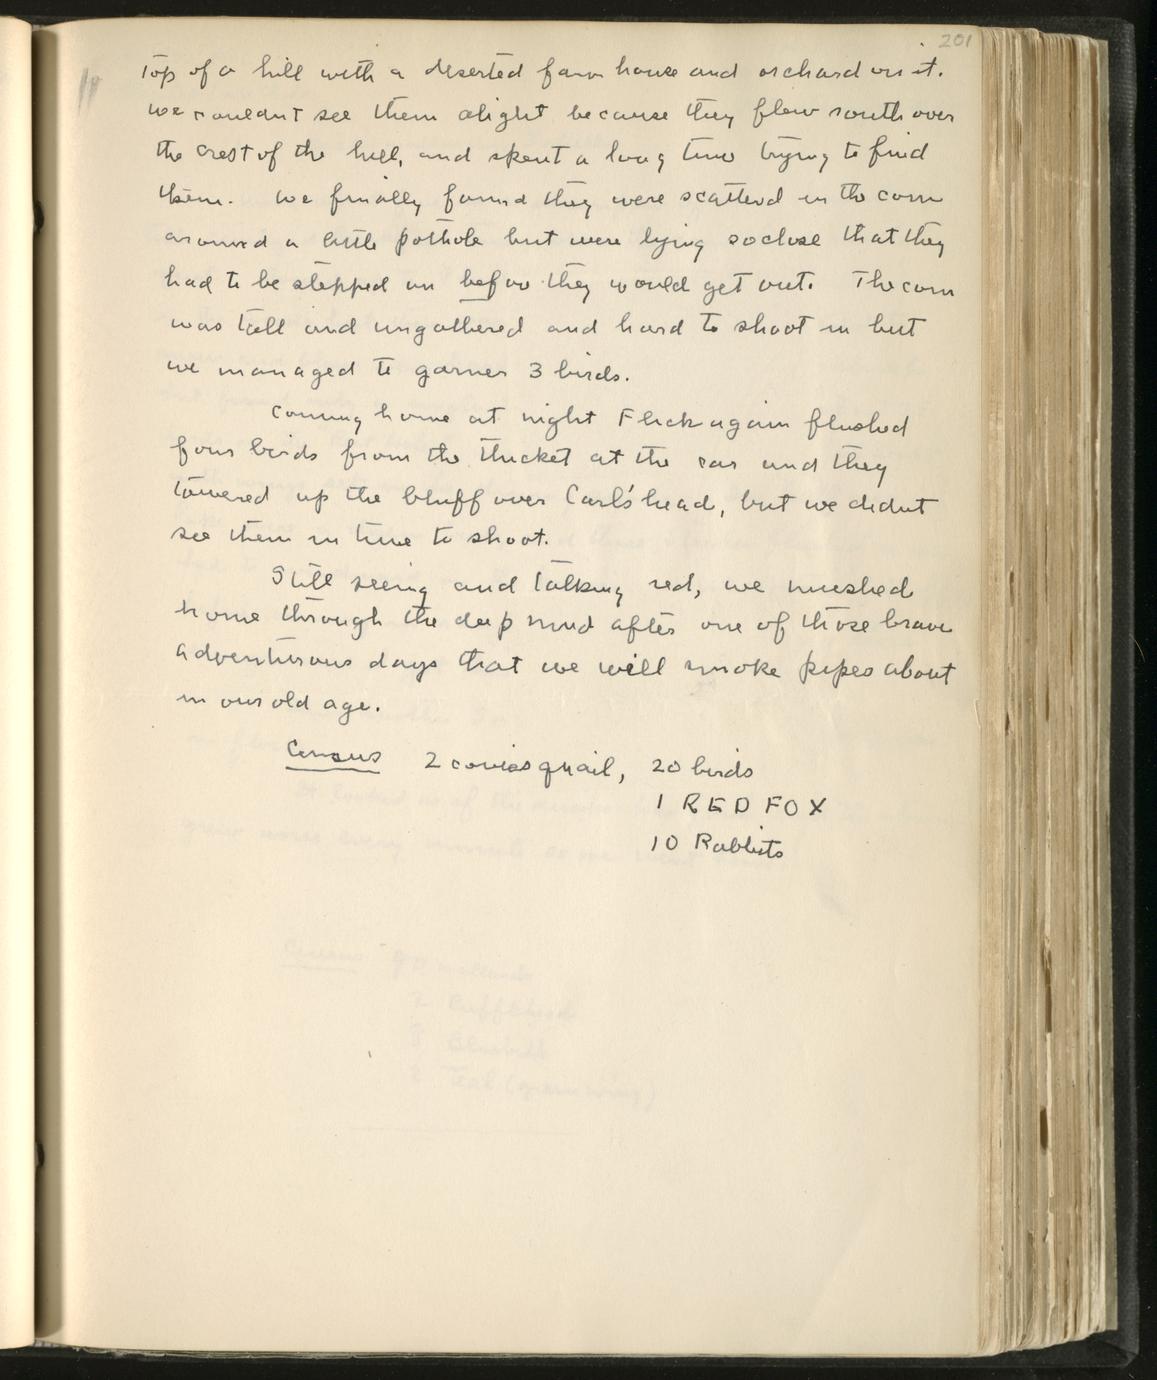 201
top of a hill with a deserted farm house and orchard on it.
we couldn't see them alight because they flew south over
the crest of the hill, and spent a long time trying to find
them. We finally found they were scattered in the corn
around a little pothole but were lying so close that they
had to be stepped on before they would get out. The corn
was tall and ungathered and hard to shoot in but
we managed to garner 3 birds.
Coming home at night Flick again flushed
four birds from the thicket at the car and they
towered up the bluff over Carl's head, but we didnt
see them in time to shoot.
Still seeing and talking red, we mushed
home through the deep mud after one of those brave
adventurous days that we will smoke pipes about
in our old age.
Census 2 covies quail, 20 birds
1 RED FOX
10 Rabbits